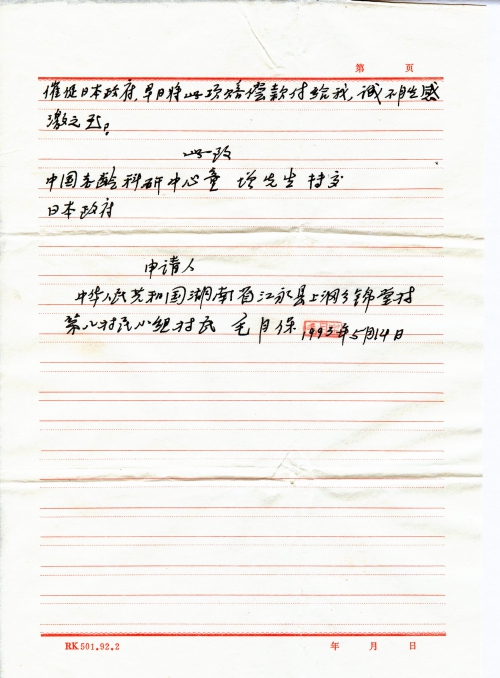 第 页
催促日本政府,早日将此项赔偿款付给我,诚不胜感
激之至!
此致
中国老龄科研中心童 增先生 转交
日本政府
申请人
中华人民共和国湖南省江永县上洞乡锦堂村
第八村民小组村民 毛月保 1993年5月14日
RK501.92.2 年 月 日